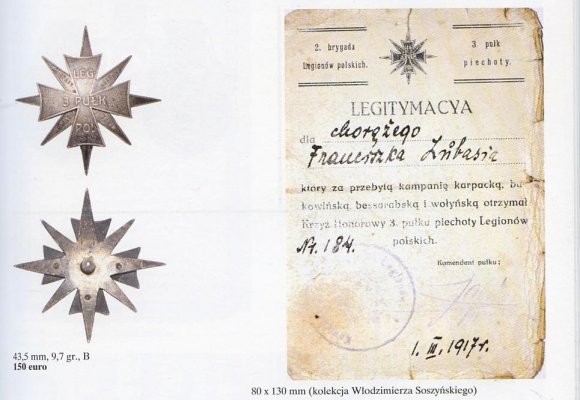 LEG
3 PUŁK
POL
43,5 mm, 9,7 gr., B
150 euro
2. brygada
Legionów polskich.
3. pułk
piechoty.
LEGITYMACYA
dla chorążego
Franciszka Zubasia
który za przebytą kampanię karpacką, bu-
kowińską, bessarabską i wołyńską otrzymał
Krzyż Honorowy 3. pułku piechoty Legionów
polskich.
Nr. 184.
Komendant pułku:
1. III. 1917 r.
80 x 130 mm (kolekcja Włodzimierza Soszyńskiego)